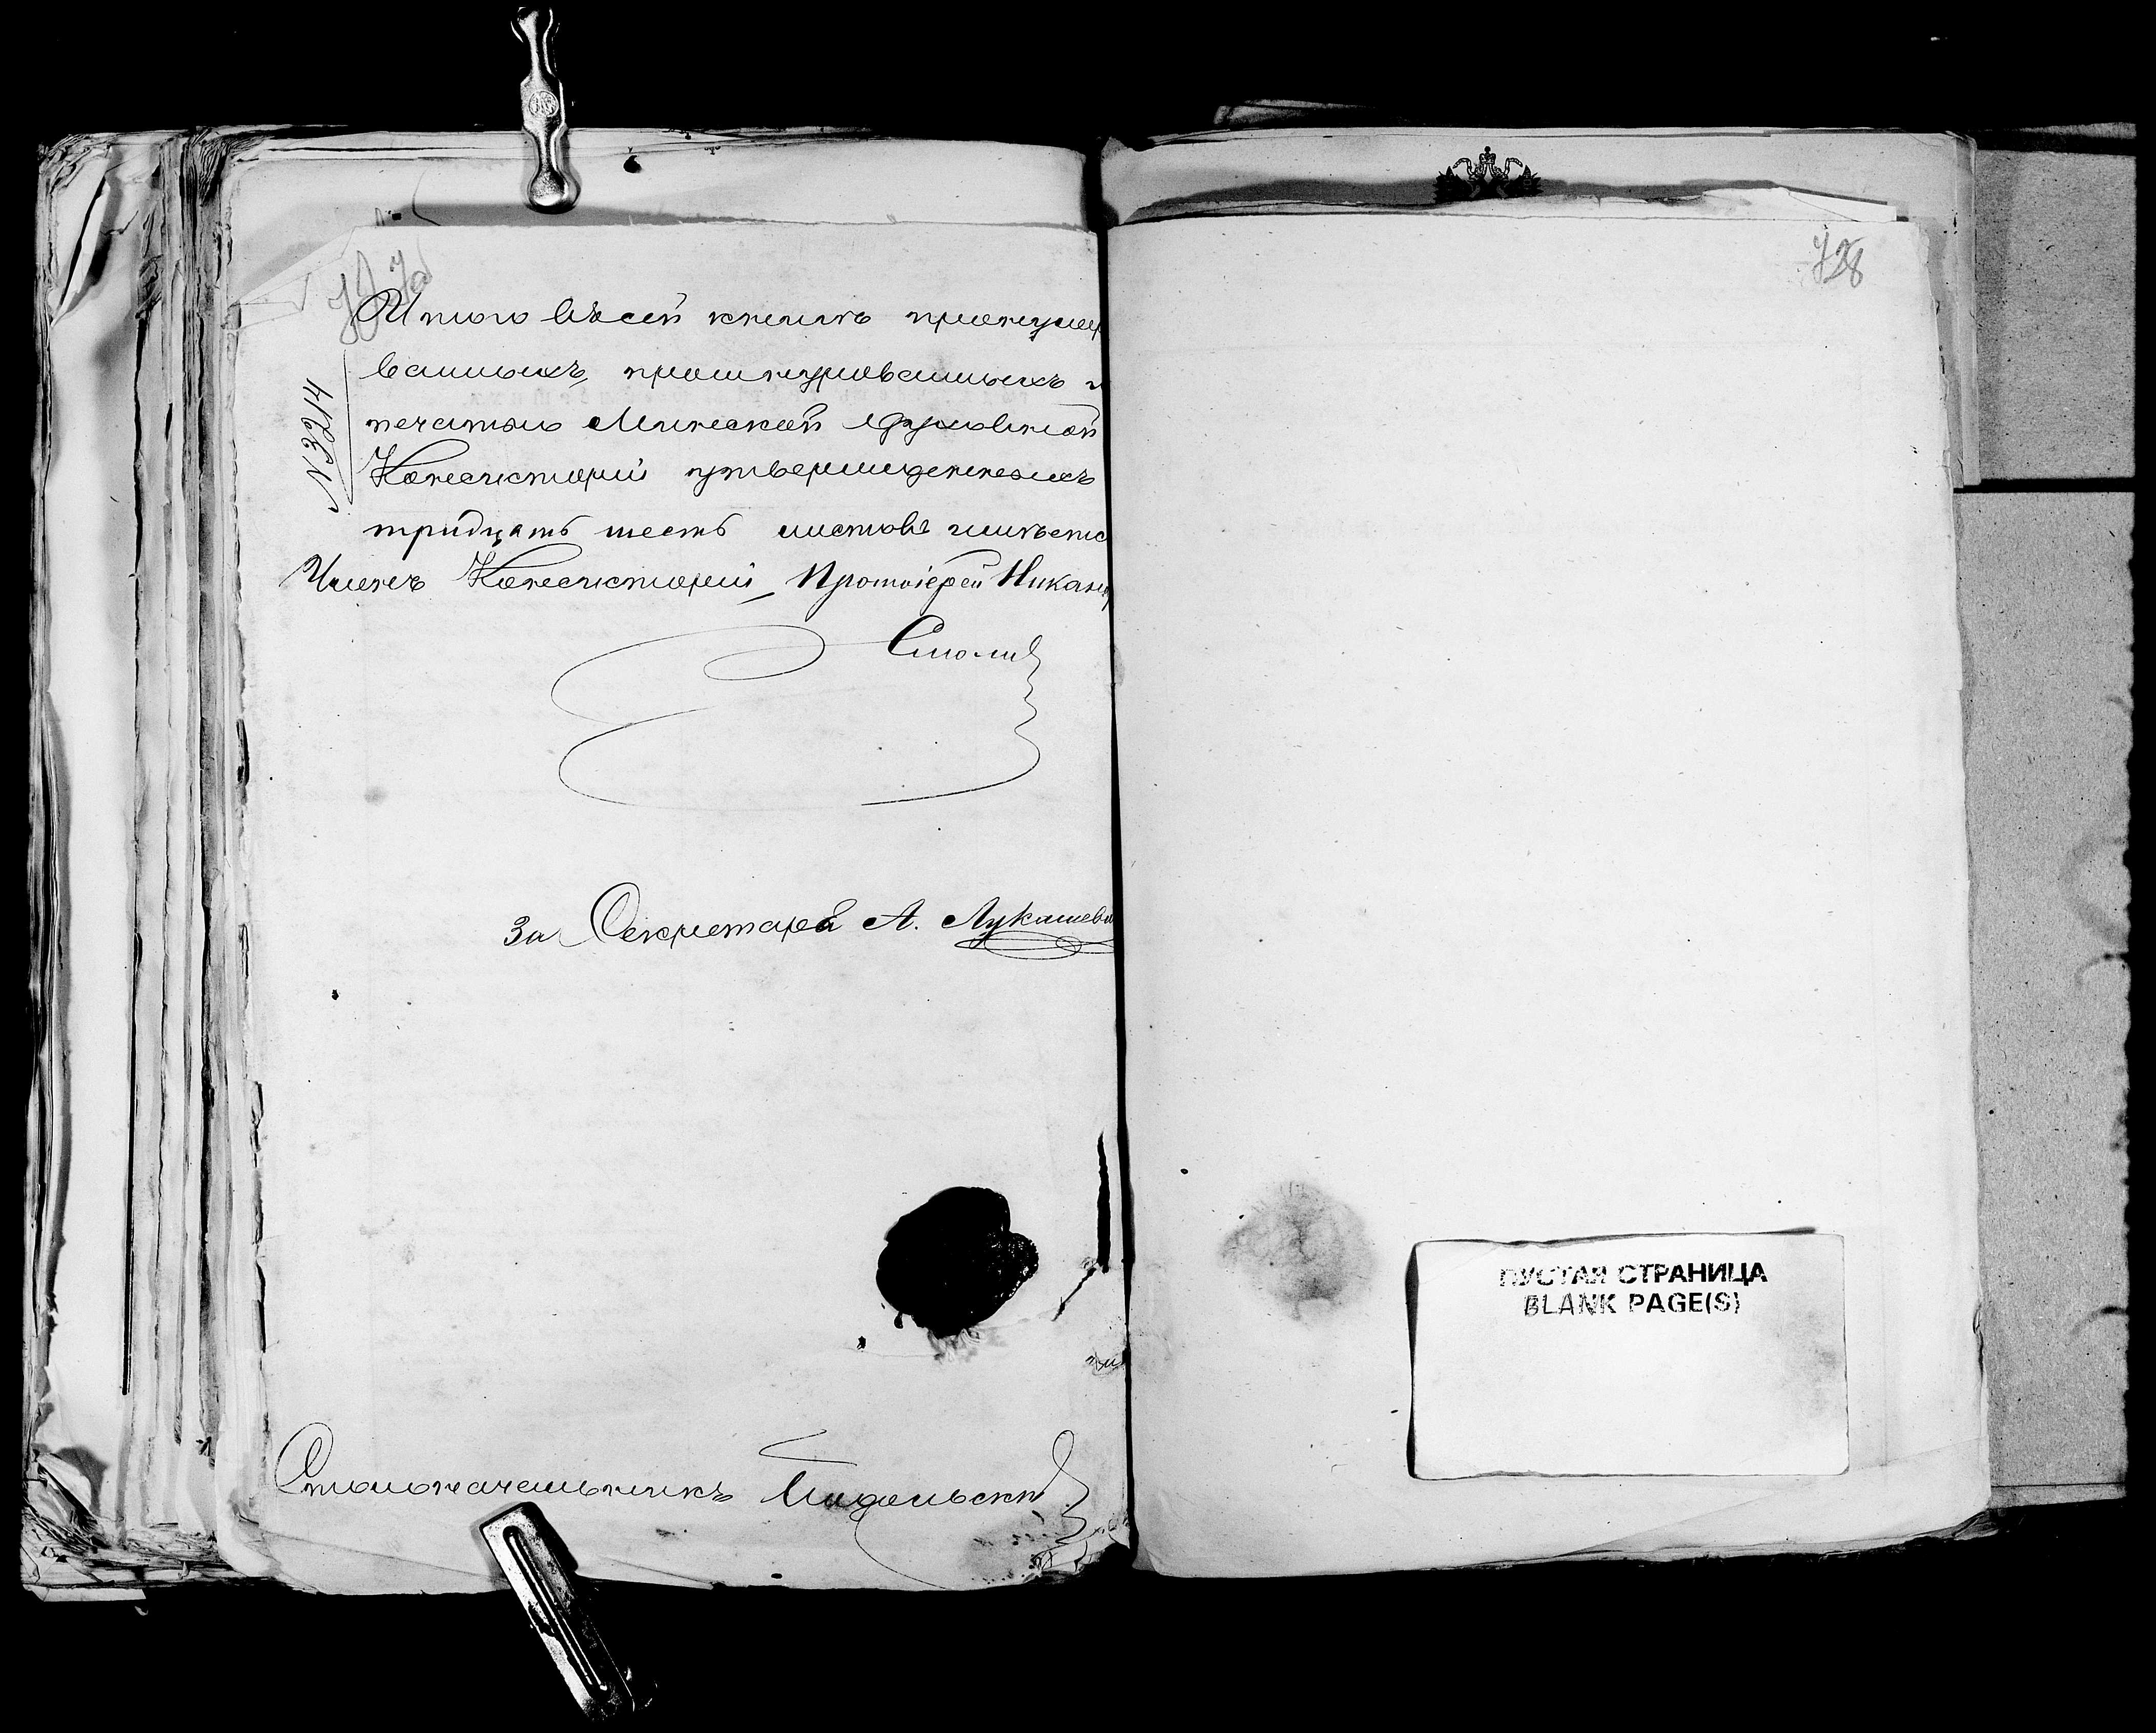 Итого въ сей книгѣ пронумеро
ванныхъ, прошнурованныхъ и
печатью Минской Духовной
Консисторіи утвержденныхъ
тридцать шесть листовъ имѣетс
№ 3214
Членъ Консисторіи, Протоіерей Никано
Смолич
За Секретаря А. Лукашеви
Столоначальникъ
728
ПУСТАЯ СТРАНИЦА
BLANK PAGE(S)